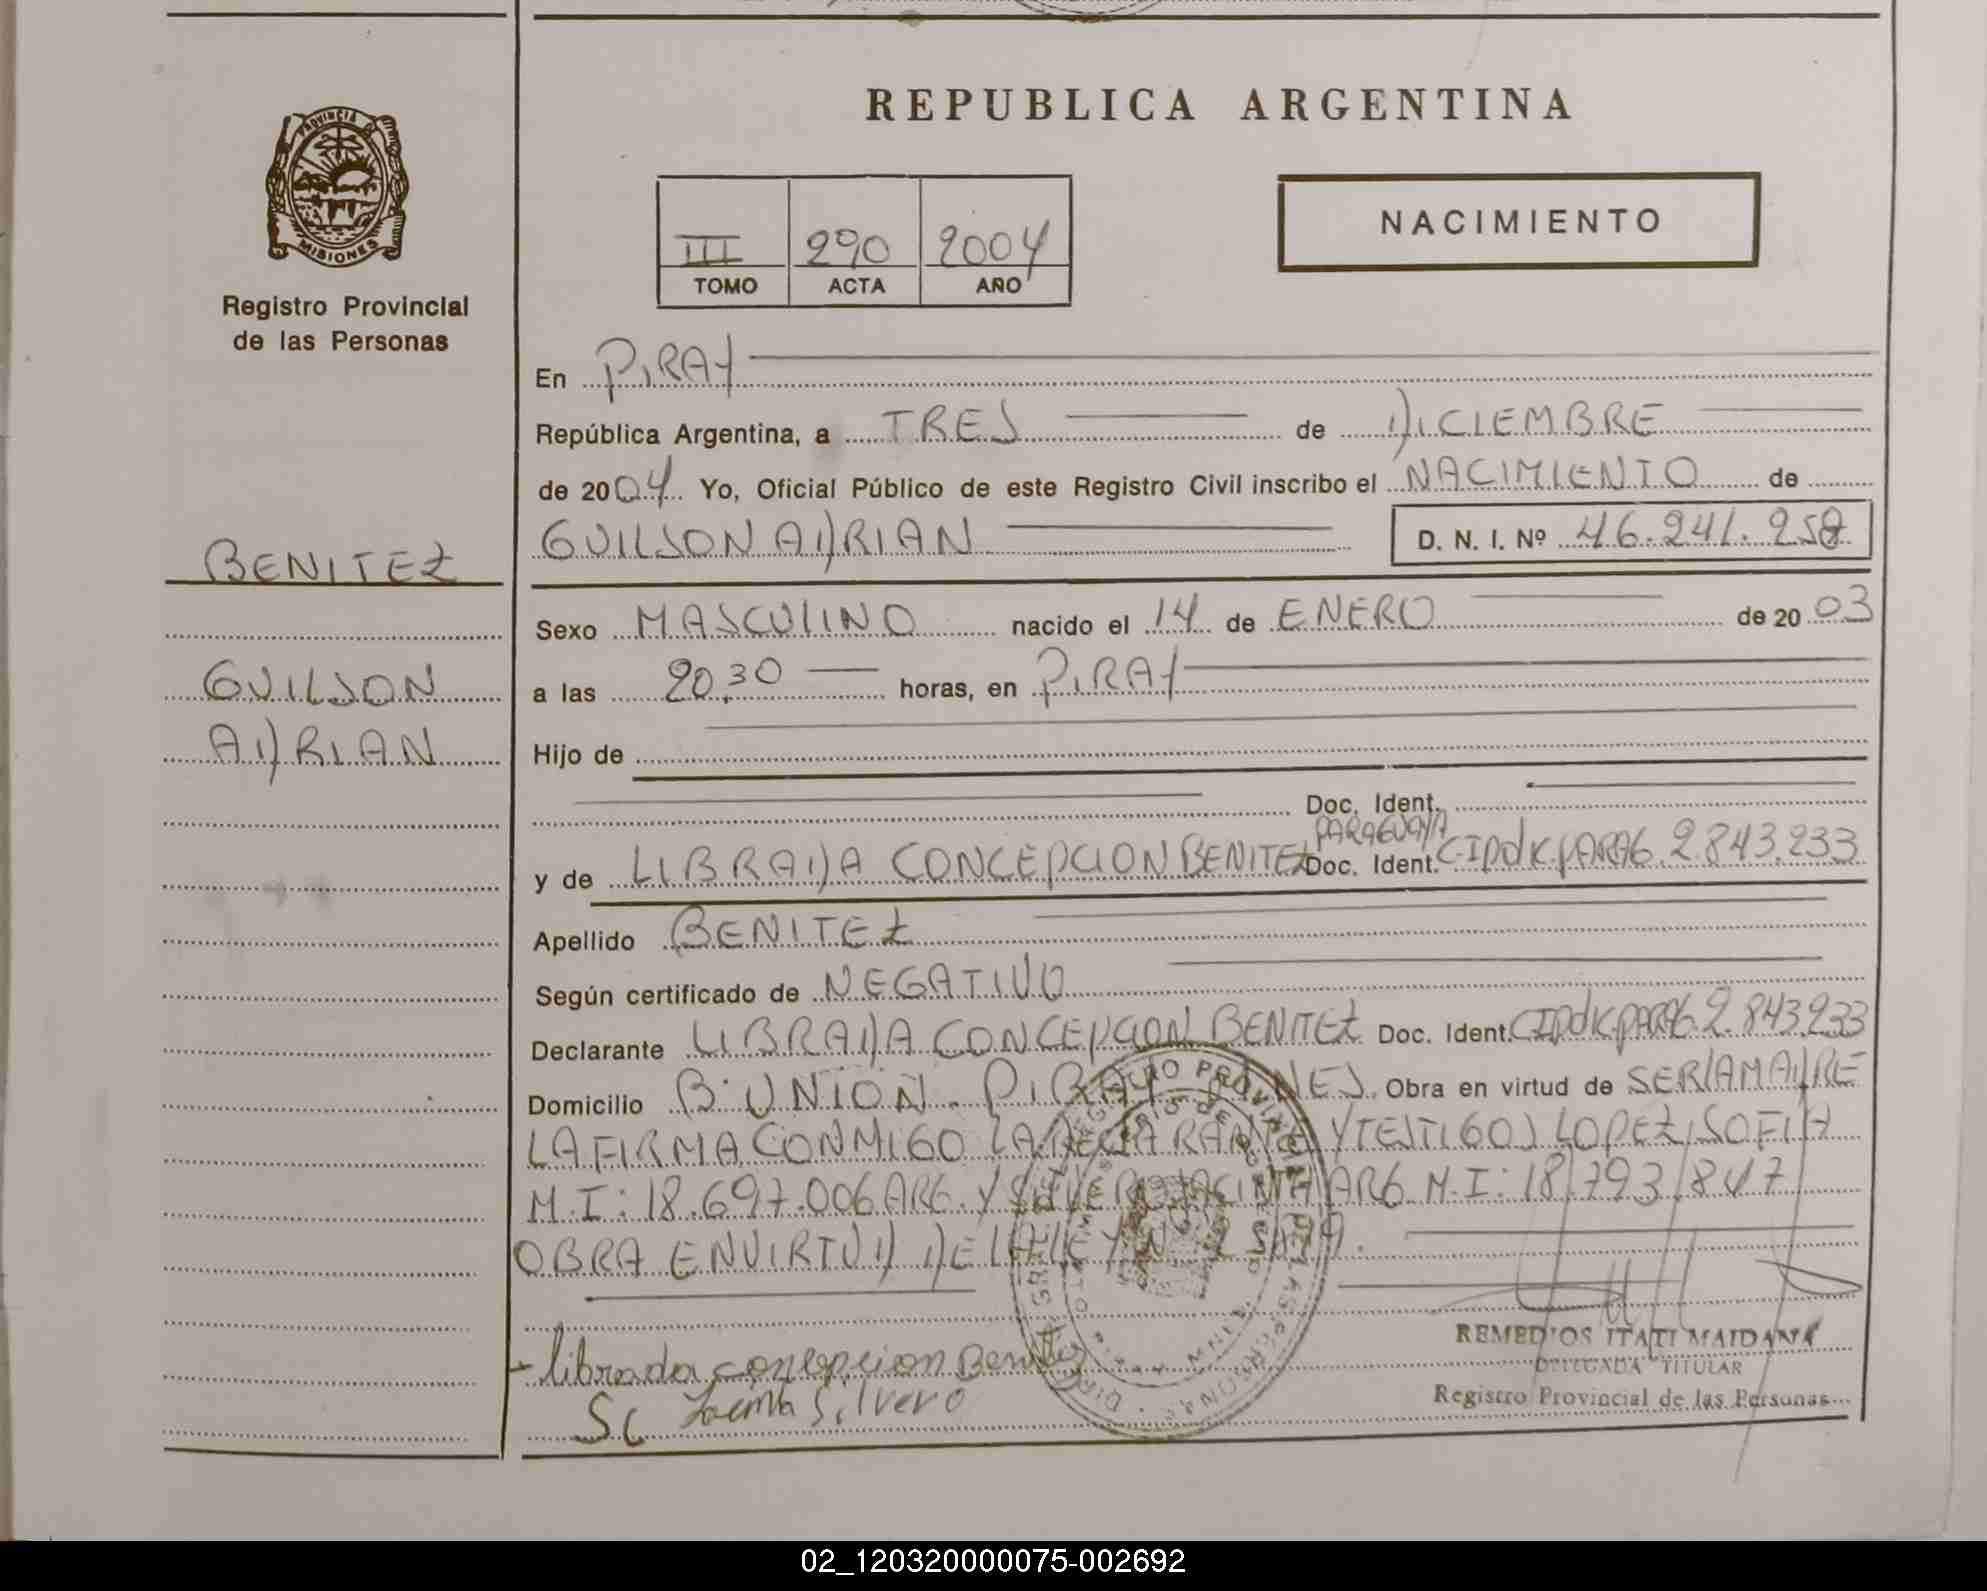 REPUBLICA ARGENTINA
PROVINCIA DE
MISIONES
Registro Provincial
de las Personas
III 290 2004
TOMO ACTA AÑO
NACIMIENTO
En PIRAY
República Argentina, a TRES de DICIEMBRE
de 2004 Yo, Oficial Público de este Registro Civil inscribo el NACIMIENTO de
GUILSON ADRIAN D. N. I. Nº 46.241.258
BENITEZ
GUILSON
ADRIAN
Sexo MASCULINO nacido el 14 de ENERO de 2003
a las 20,30 horas, en PIRAY
Hijo de
Doc. Ident.
PARAGUAYA
y de LIBRADA CONCEPCION BENITEZ Doc. Ident. C.I.Pd.K.PARAG. 2.843.233
Apellido BENITEZ
Según certificado de NEGATIVO
Declarante LIBRADA CONCEPCION BENITEZ Doc. Ident. CIPdK.PARAG. 2.843.233
Domicilio Bº UNION. PIRAY Obra en virtud de SER LA MADRE
LA FIRMA CONMIGO LA Y TESTIGOS LOPEZ, SOFIA
M.I: 18.697.006 ARG. Y SILVERO JACINTA ARG M.I: 18.793.847
OBRA EN VIRTUD DE
Librada concepcion Benitez
SL Jacinta Silvero
REMEDIOS ITATI MAIDANA
DELEGADA TITULAR
Registro Provincial de las Personas
02_120320000075-002692